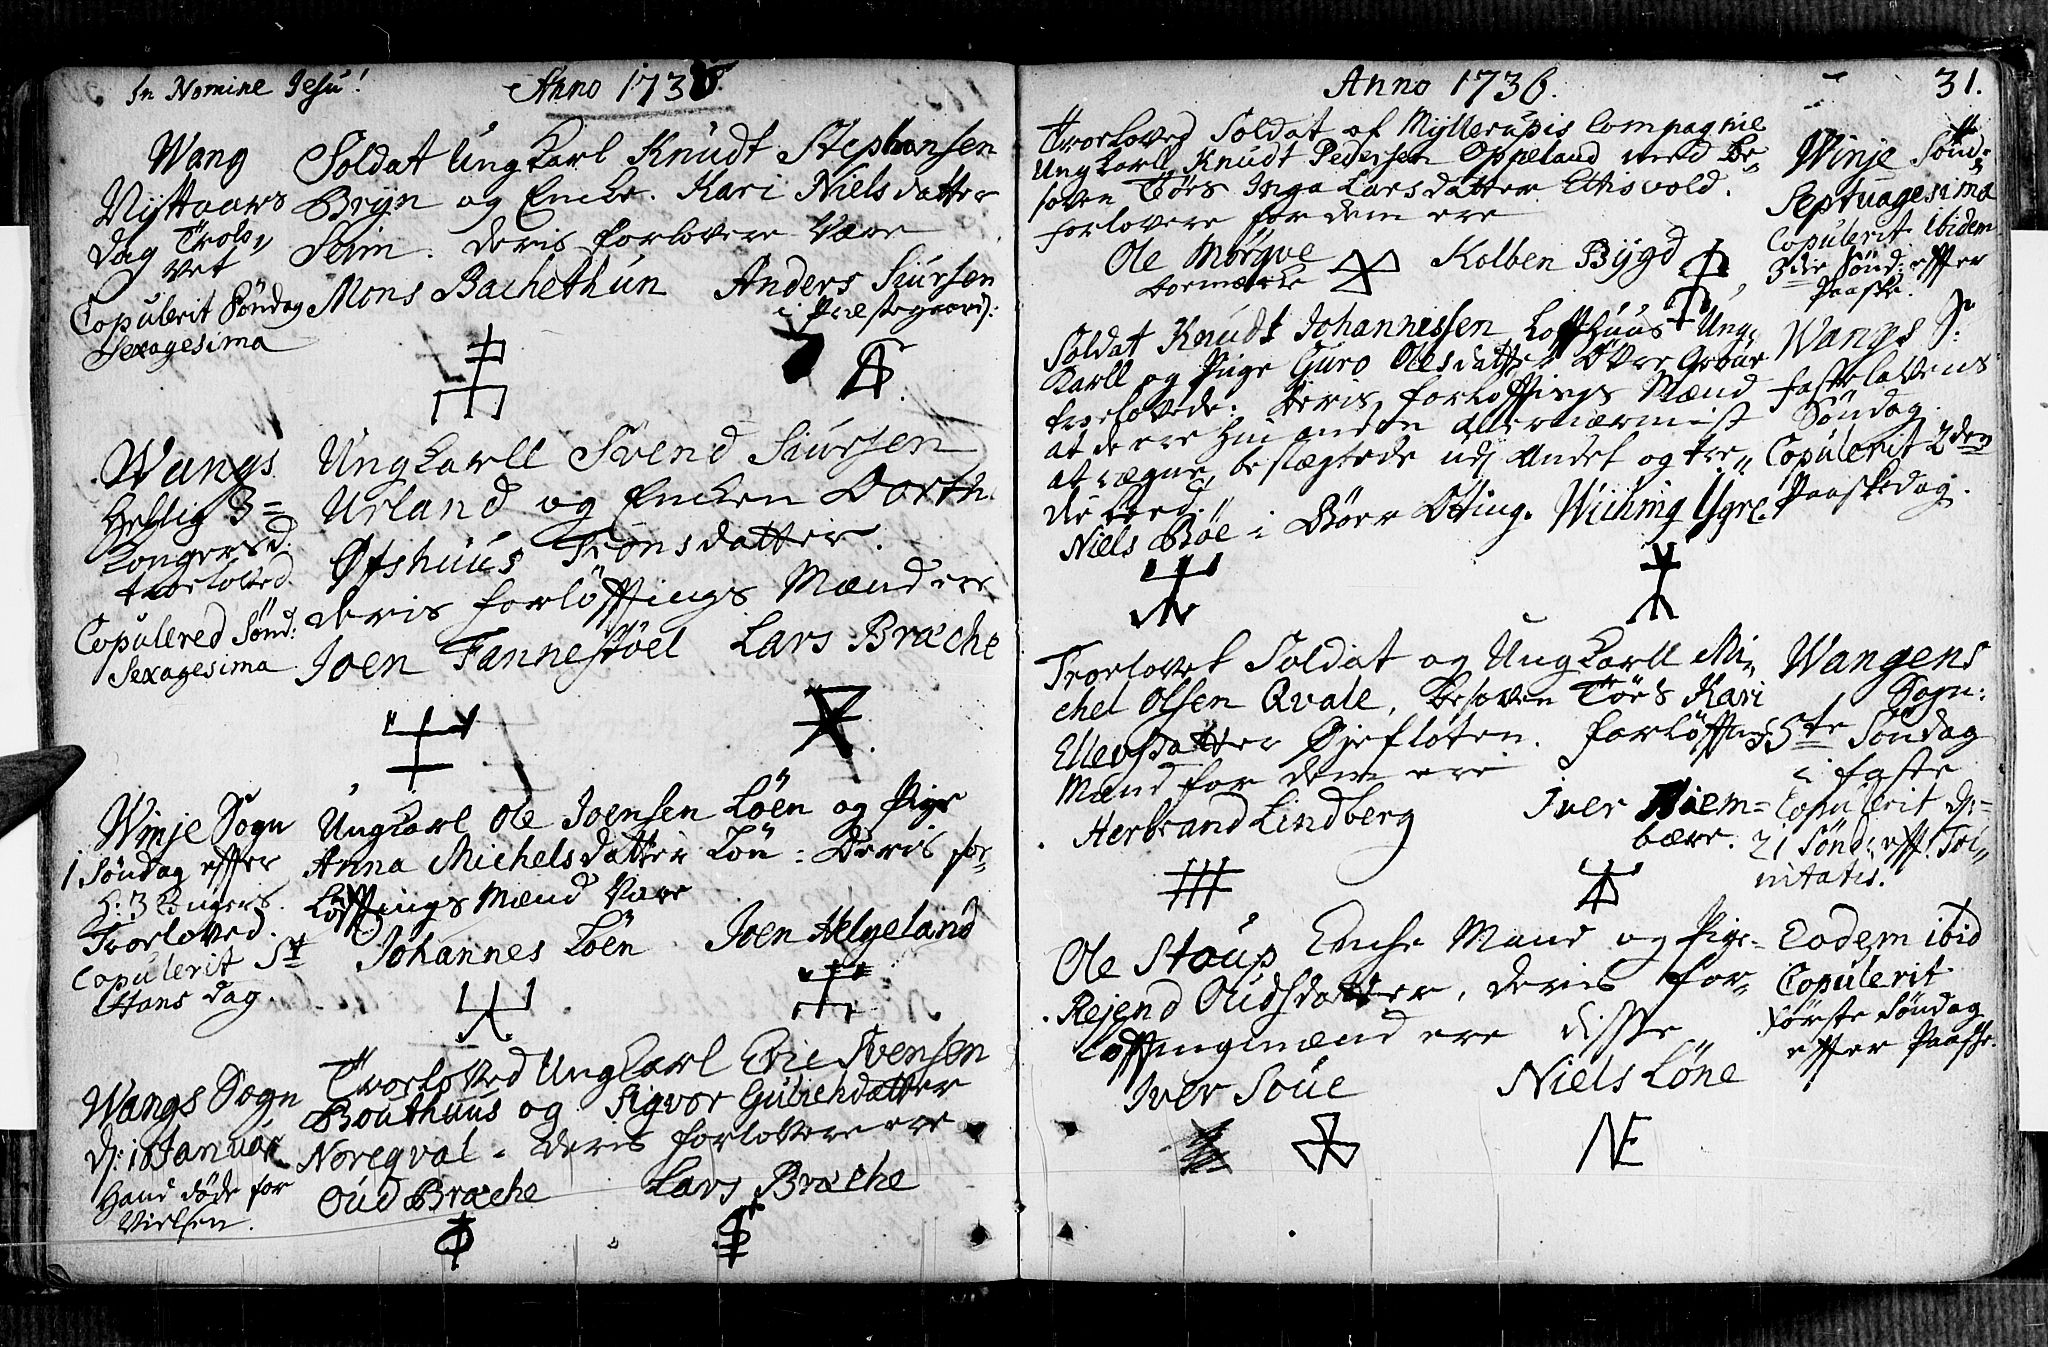 In Nomine Jesu! Anno 1736.
Wang
Nijttaars
dag Trolo,,
vet
Copulerit Söndag
Sexagesima
Soldat Ungkarl Knudt Stephansen
Brijn og Encke. Kari Niels datter
Seim. deris forlovere Vare
Mons Bachethun Anders Siursen
i Præstegaard:
Wangs
Hellig 3=
Kongersd.
troeloved
Copulered Sönd:
Sexagesima
Ungkarll Svend Siursen
Urland og Encken Dorth.
Øfshuus Trönsdatter.
deris forlöffnings Mænd ere
Joen Fannestöel Lars Bræche
Winje Sogn
1 Söndag effter
H: 3 Kongers.
Troeloved.
Copulerit St
Hans dag.
Ungkarl Ole Joensen Löen og Pige
Anna Michelsdatter Lön: Deris for-
Löffnings Mænd Vare
Johannes Löen Joen Helgeland
Wangs Sogn
d: 18 Januar
Hand döde for
Vielsen.
Troeloved Ungkarl Eric Svensen
Bouthuus og Sigvor Gulichdatter
Noreqval - deris forlovere ere
Oud Bræche Lars Bræche
Anno 1736. 31.
Troeloved Soldat af Mÿllerupis Compagnie
Ungkarll Knudt Pedersen Oppeland med be-
soven Töes Inga Larsdatter Ettisvold.
forlovere for dem ere
Ole Mörqve Kolben Bÿgd
boemærke
Winje Sönd:
Septuagesima
Copulerit ibidem
3die Sönd: effter
Paaske.
Soldat Knudt Johannessen Loffthuus Ung,
karll og Pige Guro Olesdatter Övre Groue
troelovede: deris forlöffnings Mænd
at de ere hin anden allernærmist
at rægne, beslægtede udj andet og tre,,
die Leed.
Niels Böe i Böer Otting. Wiching Ygre.
Wangs S:
fastelavens
Söndag.
Copulerit 2den
Paaskedag.
Troelovet Soldat og Ungkarll Mi-
chel Olsen Qvale, besoven Töes Kari
Ellevsdatter Øjefloten. forlöffnings
Mænd for dem ere
Herbrand Lindberg Iver Hiem=
bære.
Wangens
Sogn:
5te Söndag
i faste
Copulerit d:
21 Sönd: efft. Tri,,
nitatis.
Ole Stoup Encke Mand og Pige
Rejend Oudsdatter, deris for-
Löffningsmænd ere disse
Iver Soue Niels Löne
Eodem ibid
Copulerit
förste Söndag
effter Paaske.
NE